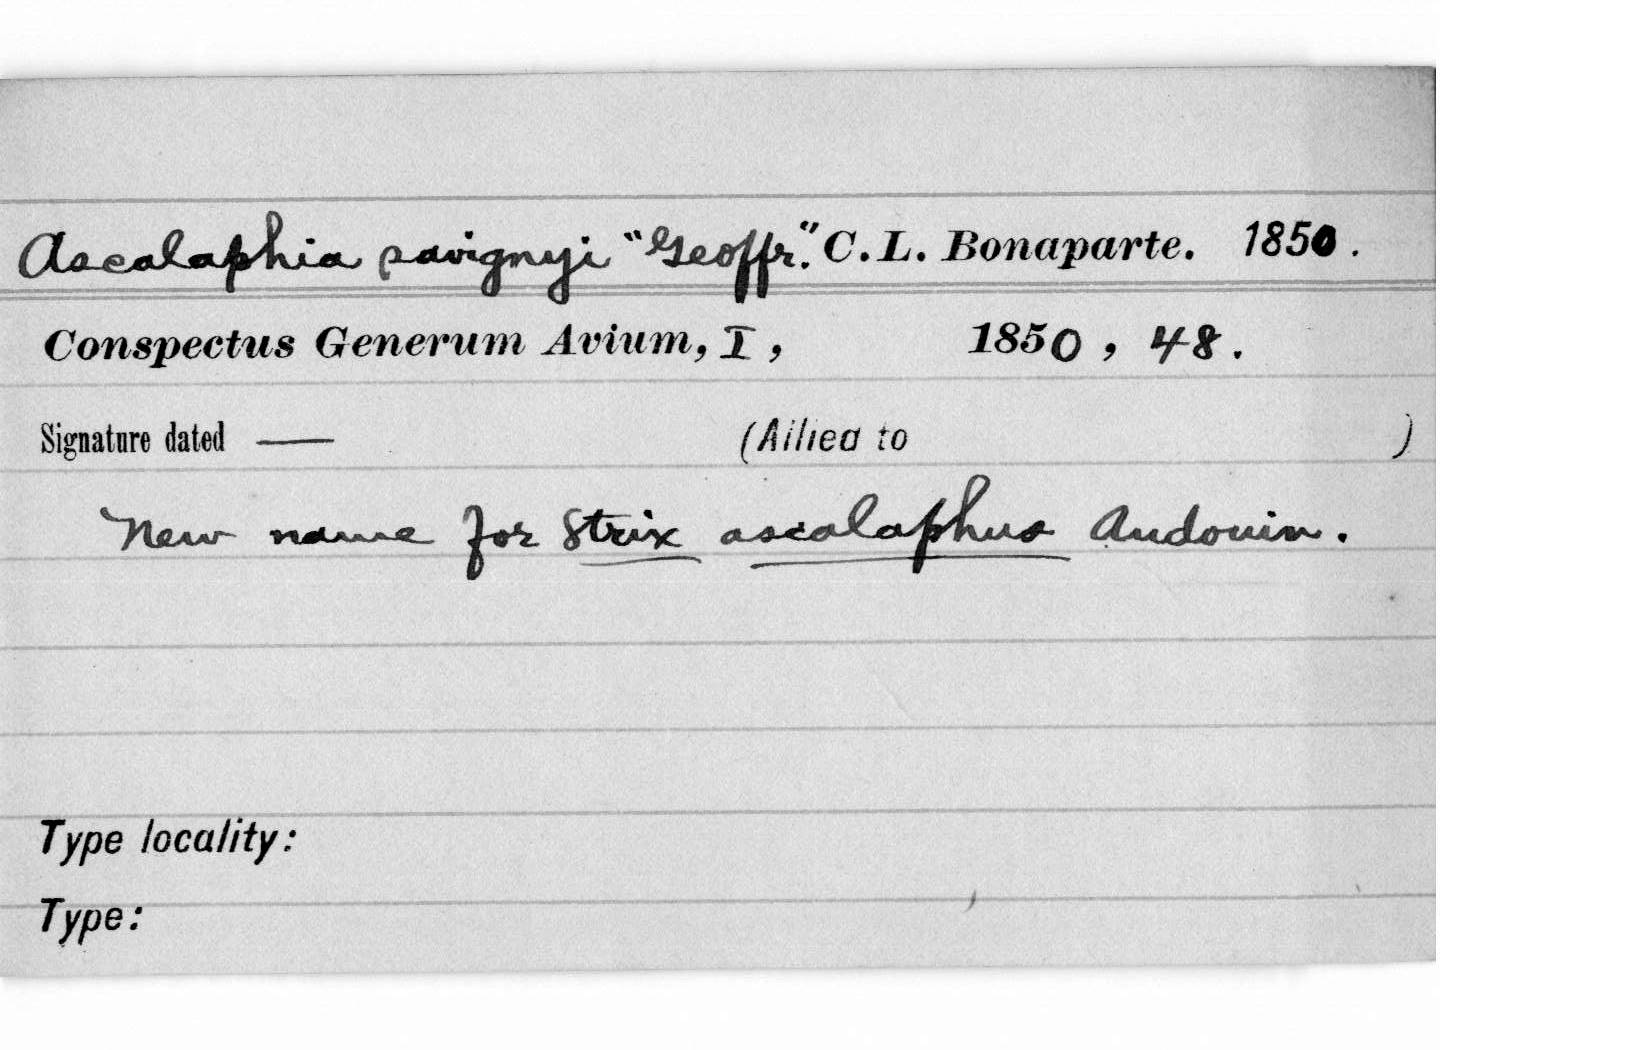 Ascalaphia savignyi "Geoffr." C. L. Bonaparte. 1850.
Conspectus Generum Avium, I, 1850, 48.
Signature dated — (Allied to )
New name for Strix ascalaphus Audouin.
Type locality:
Type: